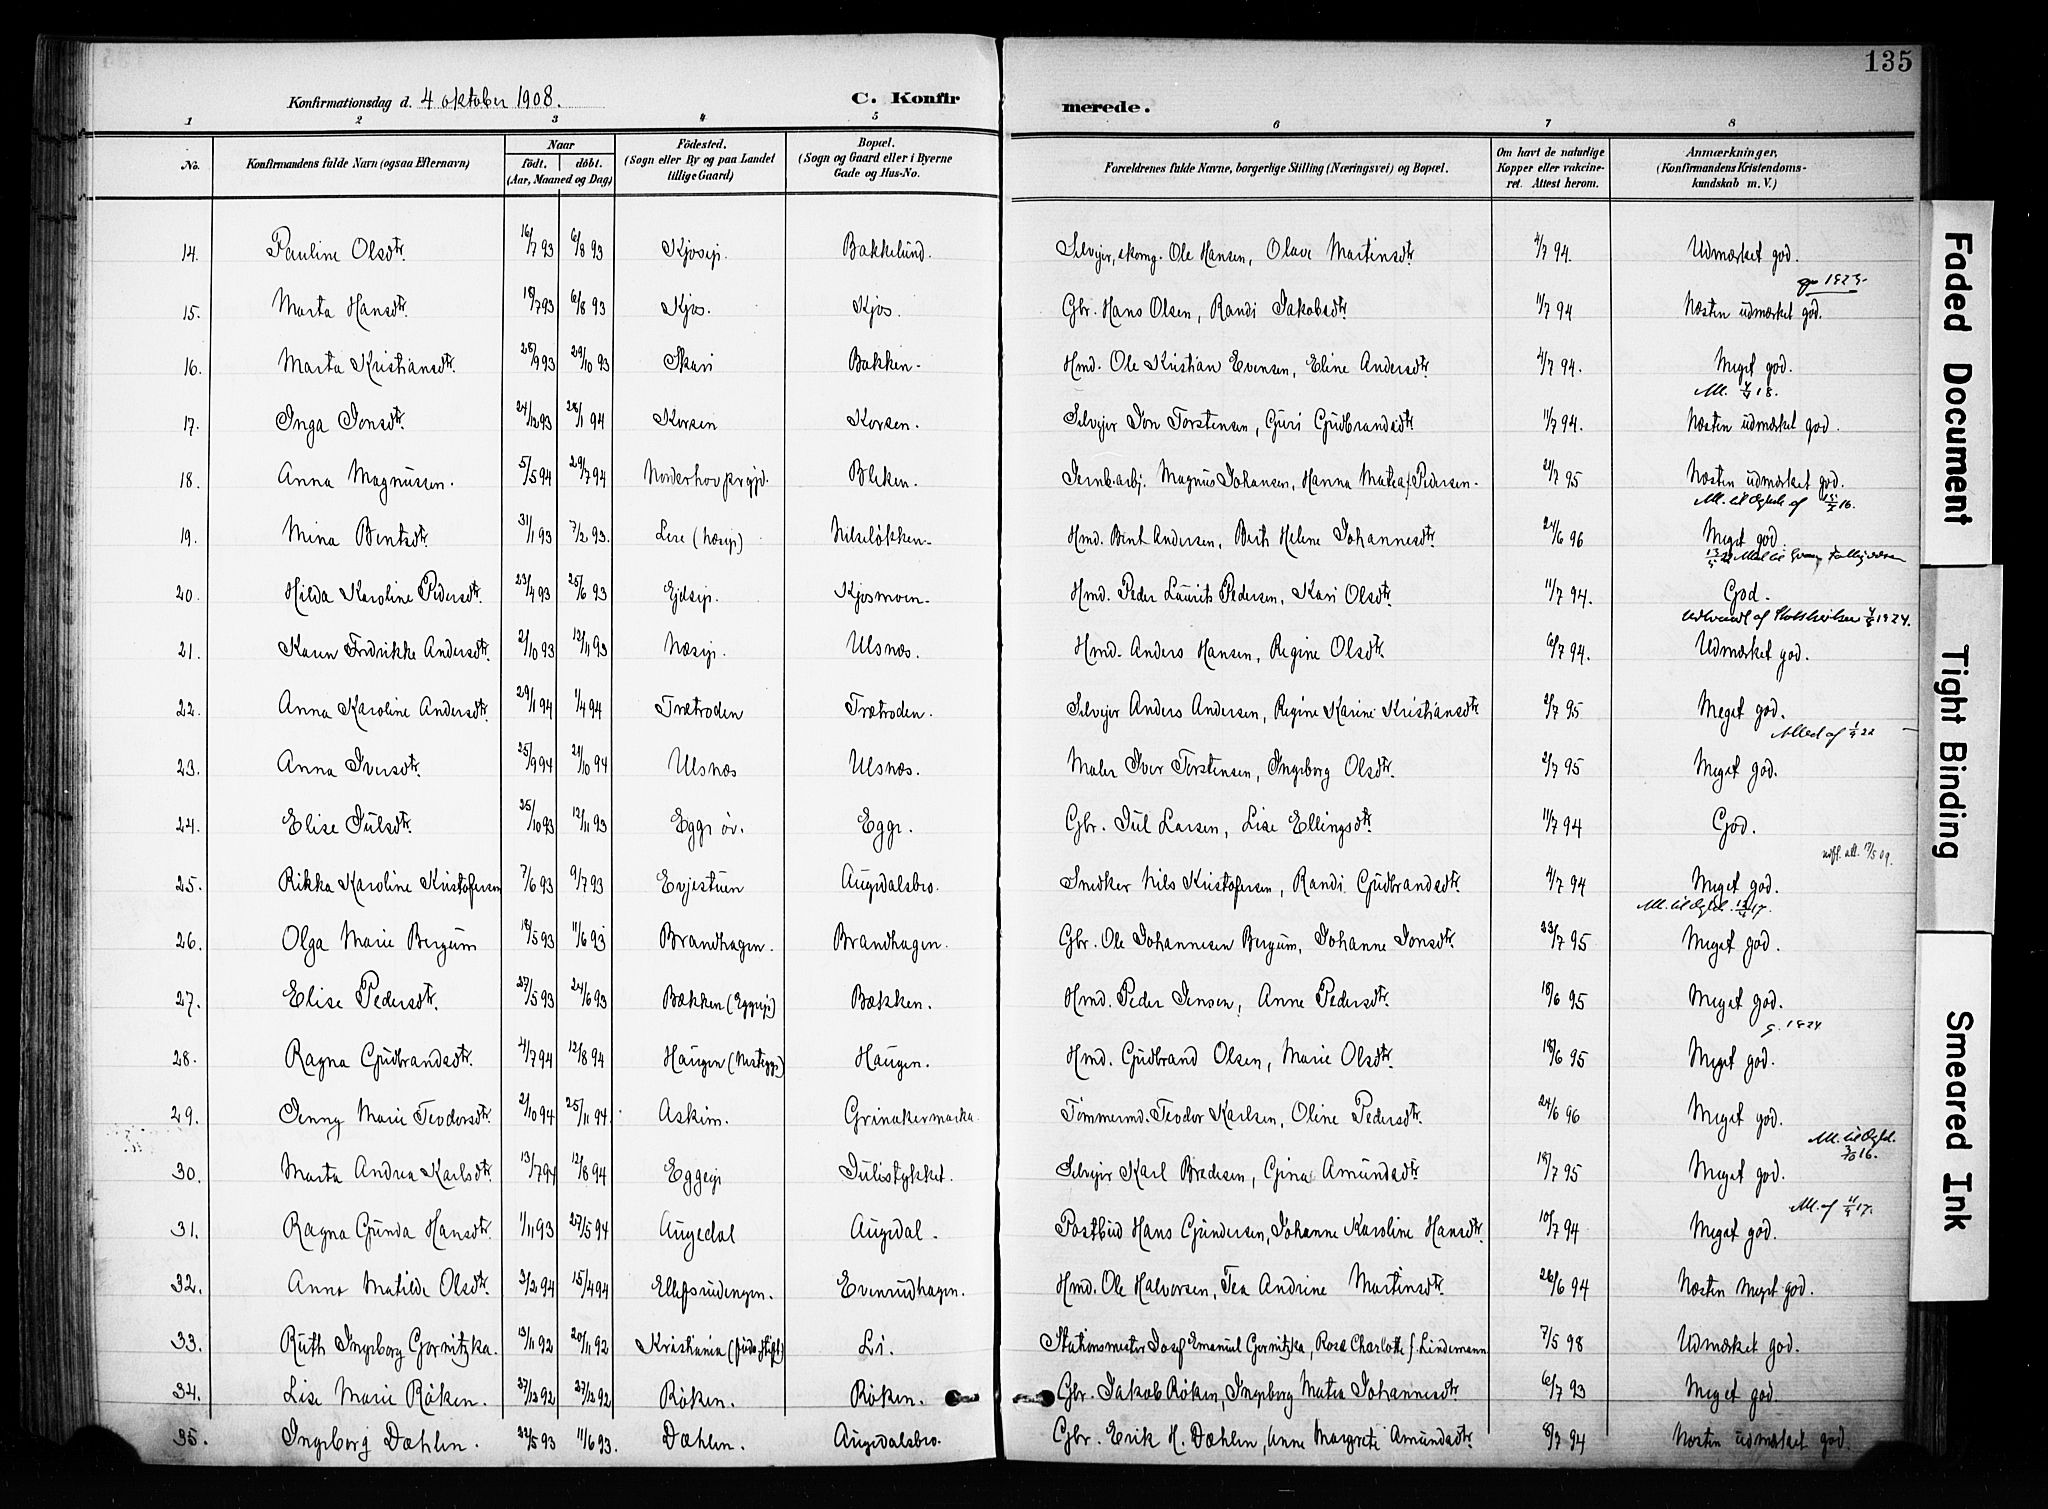 135
Konfirmationsdag d. 4 oktober 1908. C. Konfirmerede.
1 2 3 4 5 6 7 8
No. Konfirmandens fulde Navn (ogsaa Efternavn) Naar födt. döbt. (Aar, Maaned og Dag) Födested. (Sogn eller By og paa Landet tillige Gaard) Bopæl. (Sogn og Gaard eller i Byerne Gade og Hus-No. Forældrenes fulde Navne, borgerlige Stilling (Næringsvei) og Bopæl. Om havt de naturlige Kopper eller vakcineret. Attest herom. Anmærkninger, (Konfirmandens Kristendomskundskab m. V.)
14. Pauline Olsdtr. 16/7 93 6/8 93 Kjosejr. Bakkelund. Selvejer, skomg. Ole Hansen, Olave Martinsdtr 4/7 94. Udmærket god.
1923.
15. Marta Hansdtr. 18/7 93 6/8 93 Kjos. Kjos. Gbr. Hans Olsen, Randi Jakobsdtr. 11/7 94 Næsten udmærket god.
16. Marta Kristiansdtr. 28/9 93 29/10 93 Skari Bakken. Hmd. Ole Kristian Evensen, Eline Andersdtr. 4/7 94. Meget god.
17. Inga Jonsdtr. 24/12 93 28/1 94 Korsen Korsen. Selvejer Jon Torstensen, Guri Gudbrandsdtr 11/7 94. Næsten udmærket god.
18. Anna Magnussen. 5/5 94 29/7 94 Norderhov prgjd. Bleken. Jernb.arbj. Magnus Johansen, Hanna Matea f. Pedersen. 21/7 95 Næsten udmærket god.
19. Mina Bentsdtr. 31/1 93 7/2 93. Lese (Næsejr) Nilseløkken. Hmd. Bent Andersen, Berth Helene Johannesdtr. 24/6 96 Meget god.
20. Hilda Karoline Pedersdtr. 23/4 93 25/6 93 Ejdsejr. Kjosmoen. Hmd. Peder Laurits Pedersen, Kari Olsdtr. 11/7 94. God.
21. Karen Fredrikke Andersdtr. 2/10 93 12/11 93 Næsejr. Ulsnæs. Hmd. Anders Hansen, Regine Olsdtr. 6/7 94. Udmærket god.
22. Anna Karoline Andersdtr. 29/1 94 1/4 94 Trætroden Trætroden. Selvejer Anders Andersen, Regine Karine Kristiansdtr 2/7 95 Meget god.
23. Anna Iversdtr. 25/9 94 29/10 94 Ulsnæs Ulsnæs. Maler Iver Torstensen, Ingeborg Olsdtr. 2/7 95 Meget god.
24. Elise Julsdtr. 25/10 93 12/11 93 Egge öv. Egge. Gbr. Jul Larsen, Lise Ellingsdtr. 11/7 94 God.
25. Rikka Karoline Kristofersen 7/6 93 9/7 93 Evjestuen Augedalsbro. Snedker Nils Kristofersen, Randi Gudbrandsdtr. 4/7 94 Meget god.
26. Olga Marie Bergum 18/5 93 11/6 93 Brandhagen. Brandhagen. Gbr. Ole Johannesen Bergum, Johanne Jonsdtr. 23/7 95 Meget god.
27. Elise Pedersdtr. 27/5 93 24/6 93 Bækken (Eggeejr) Bækken. Hmd. Peder Jensen, Anne Pedersdtr. 18/6 95 Meget god.
g. 1924
28. Ragna Gudbrandsdtr. 4/7 94 12/8 94 Haugen Haugen. Hmd. Gudbrand Olsen, Marie Olsdtr 18/6 95 Meget god.
29. Jenny Marie Teodorsdtr. 2/10 94 25/11 94. Askim. Grinakermarka. Tömmermd. Teodor Karlsen, Oline Pedersdtr. 24/6 96 Meget god.
30. Marta Andrea Karlsdtr. 13/7 94 12/8 94 Eggeejr Julistykket. Selvejer Karl Bredesen, Gina Amundsdtr. 18/7 95 Meget god.
31. Ragna Gunda Hansdtr. 1/11 93 27/5 94 Augedal Augedal. Postbud Hans Gundersen, Johanne Karoline Hansdtr. 10/7 94 Meget god.
32. Anna Matilde Olsdtr. 3/2 94 15/4 94 Ellefsrudengen. Evenrudhagen. Hmd. Ole Halvorsen, Tea Andrine Martinsdtr. 26/6 94 Næsten Meget god.
33. Ruth Ingeborg Gornitzka. 13/11 92 20/11 92 Kristiania Li. Stationsmester Josef Emanuel Gornitzka, Rosa Charlotte f. Lindemann 7/5 98 Udmærket god.
34. Lise Marie Röken. 27/12 92 27/12 92 Röken. Röken. Gbr. Jakob Röken, Ingeborg Matea Johannesdtr 6/7 93 Meget god.
35. Ingeborg Dæhlen. 22/5 93 11/6 93. Dæhlen. Augedalsbro. Gbr. Erik H. Dæhlen, Anne Margrete Amundsdtr. 8/7 94 Næsten udmærket god.
Faded Document
Tight Binding
Smeared Ink